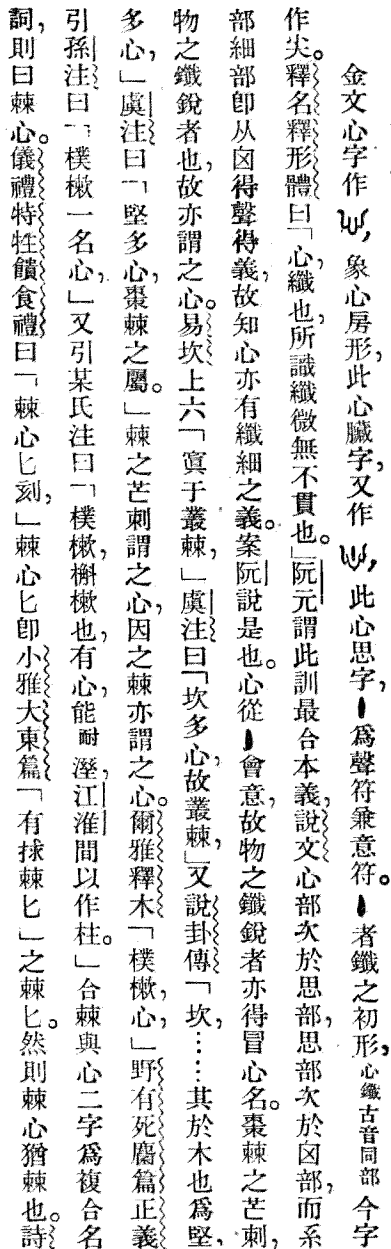 金文心字作，象心房形，此心臟字，又作，此心思字，爲聲符兼意符。者鐵之初形，心鐵古音同部今字
作尖。釋名釋形體曰「心，纖也，所識纖微無不貫也。」阮元謂此訓最合本義，說文心部次於思部，思部次於囟部，而系
部細部卽从囟得聲得義，故知心亦有纖細之義。案阮說是也。心從會意，故物之鐵銳者亦得冒心名。棗棘之芒刺，
物之鐵銳者也，故亦謂之心。易坎上六「寘于叢棘，」虞注曰「坎多心，故叢棘，」又說卦傳「坎，……其於木也爲堅，
多心，」虞注曰「堅多心，棗棘之屬。」棘之芒刺謂之心，因之棘亦謂之心。爾雅釋木「樸樕，心」野有死麕篇正義
引孫注曰「樸樕一名心，」又引某氏注曰「樸樕，槲樕也，有心，能耐溼，江淮間以作柱。」合棘與心二字爲複合名
詞，則曰棘心。儀禮特牲饋食禮曰「棘心匕刻，」棘心匕卽小雅大東篇「有捄棘匕」之棘匕。然則棘心猶棘也。詩